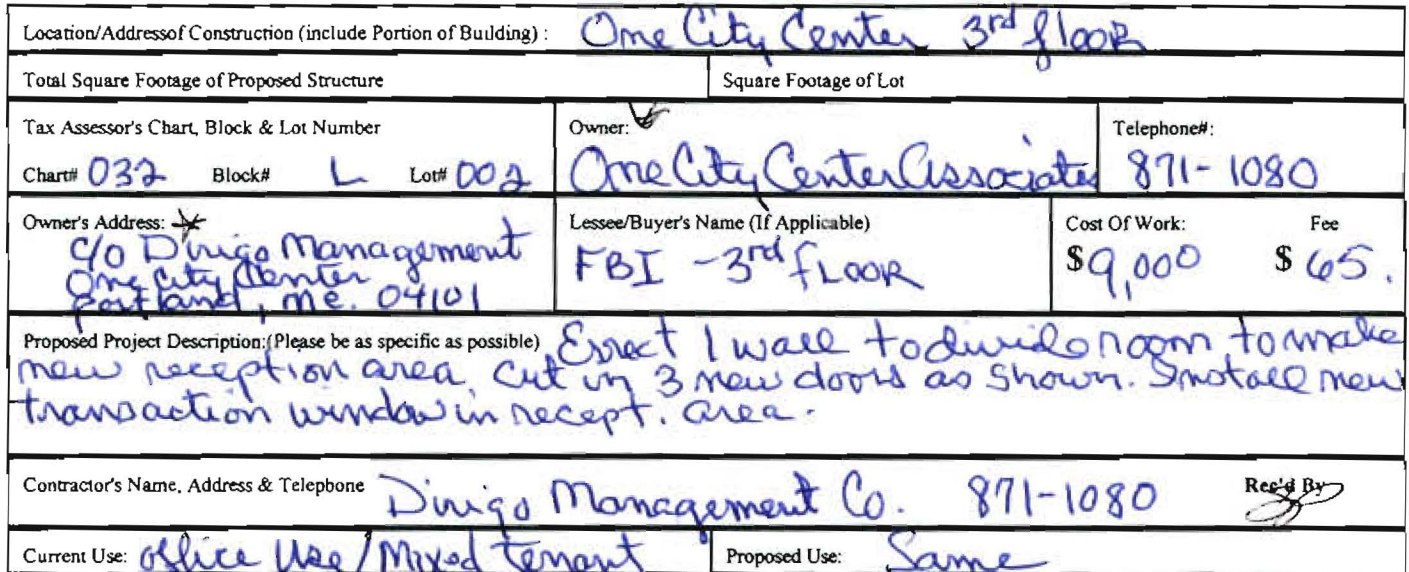 Location/Addressof Construction (include Portion of Building) : One City Center 3rd floor
Total Square Footage of Proposed Structure Square Footage of Lot
Tax Assessor's Chart, Block & Lot Number Owner: Telephone#:
Chart# 032 Block# L Lot# 002 One City Center Associates 871-1080
Owner's Address: Lessee/Buyer's Name (If Applicable) Cost Of Work: Fee
c/o Dirigo Management
One City Center FBI - 3rd floor $9,000 $65.
Portland, Me. 04101
Proposed Project Description:(Please be as specific as possible) Errect 1 wall to divide room to make
new reception area. Cut in 3 new doors as shown. Install new
transaction window in recept. area.
Contractor's Name, Address & Telephone Dirigo Management Co. 871-1080 Rec'd By
Current Use: office Use/Mixed tenant Proposed Use: Same